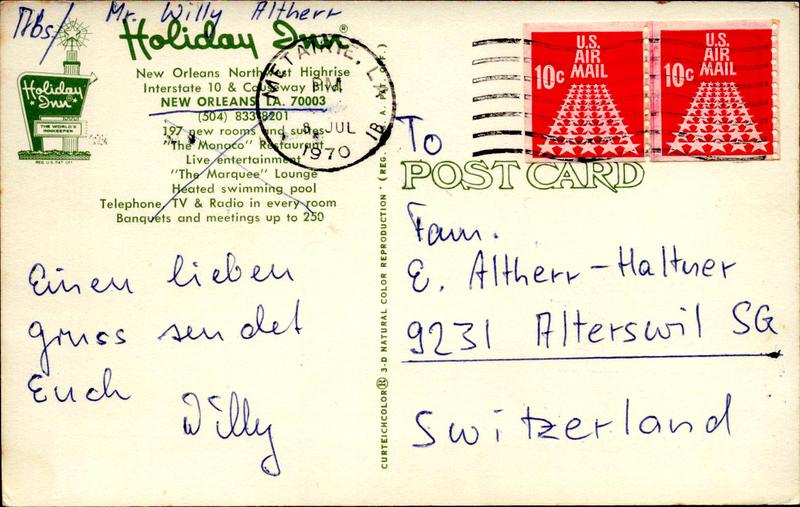 Abs/ Mr. Willy Altherr
Holiday Inn®
Holiday Inn
THE WORLD'S INNKEEPER
REG. U.S. PAT. OFF.
New Orleans Northwest Highrise
Interstate 10 & Causeway Blvd.
NEW ORLEANS, LA. 70003
(504) 833-8201
197 new rooms and suites
"The Monaco" Restaurant
Live entertainment
"The Marquee" Lounge
Heated swimming pool
Telephone, TV & Radio in every room
Banquets and meetings up to 250
METAIRIE, LA
PM
8 JUL
1970
1B
U.S. AIR MAIL
10c
U.S. AIR MAIL
10c
To
POST CARD
Einen lieben
gruss sendet
Euch
Willy
CURTEICHCOLOR® 3-D NATURAL COLOR REPRODUCTION (REG. U.S.A. PAT. OFF.)
Fam.
E. Altherr-Haltner
9231 Alterswil SG
Switzerland